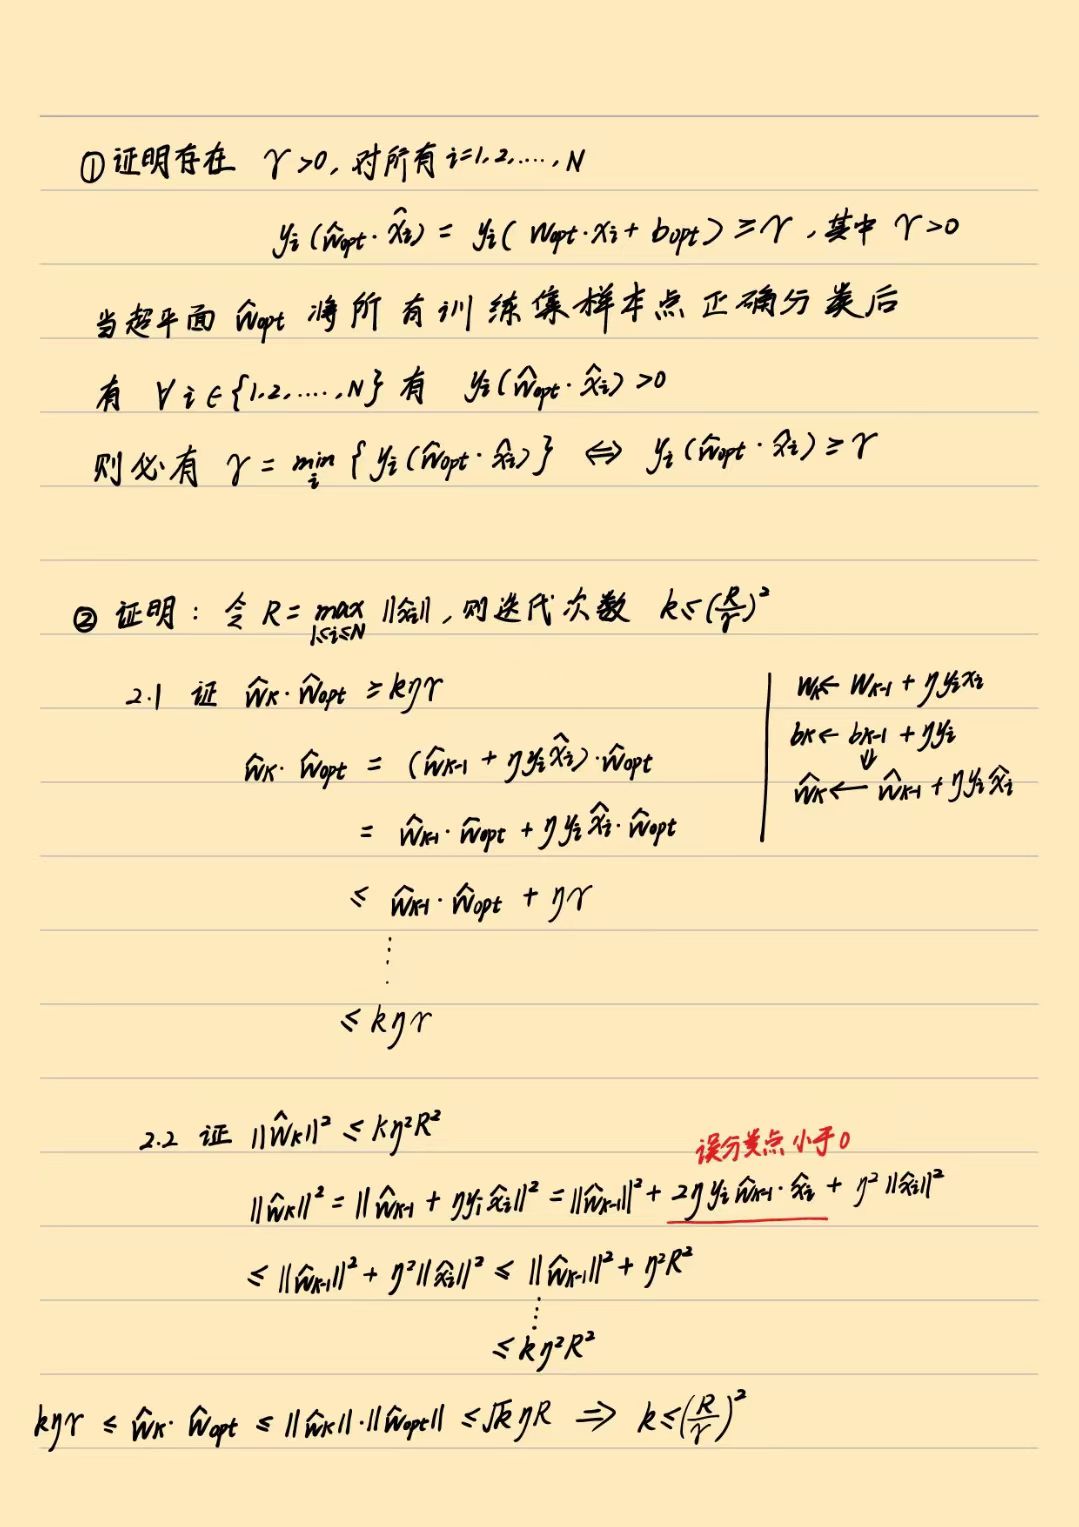 ①证明存在 γ>0, 对所有 i=1,2,....,N
yᵢ(ŵopt·x̂ᵢ) = yᵢ(wopt·xᵢ+bopt) ≥ γ, 其中 γ>0
当超平面 ŵopt 将所有训练集样本点正确分类后
有 ∀i∈{1,2,....,N} 有 yᵢ(ŵopt·x̂ᵢ)>0
则必有 γ = min_i {yᵢ(ŵopt·x̂ᵢ)} ⇔ yᵢ(ŵopt·x̂ᵢ) ≥ γ
② 证明: 令 R = max_{1≤i≤N} ||x̂ᵢ||, 则迭代次数 k ≤ (R/γ)²
2.1 证 ŵₖ·ŵopt ≥ kηγ
ŵₖ·ŵopt = (ŵₖ₋₁ + ηyᵢx̂ᵢ)·ŵopt
= ŵₖ₋₁·ŵopt + ηyᵢx̂ᵢ·ŵopt
≤ ŵₖ₋₁·ŵopt + ηγ
⋮
≤ kηγ
wₖ ← wₖ₋₁ + ηyᵢxᵢ
bₖ ← bₖ₋₁ + ηyᵢ
⇓
ŵₖ ← ŵₖ₋₁ + ηyᵢx̂ᵢ
2.2 证 ||ŵₖ||² ≤ kη²R²
误分类点小于0
||ŵₖ||² = ||ŵₖ₋₁ + ηyᵢx̂ᵢ||² = ||ŵₖ₋₁||² + 2ηyᵢŵₖ₋₁·x̂ᵢ + η²||x̂ᵢ||²
≤ ||ŵₖ₋₁||² + η²||x̂ᵢ||² ≤ ||ŵₖ₋₁||² + η²R²
⋮
≤ kη²R²
kηγ ≤ ŵₖ·ŵopt ≤ ||ŵₖ||·||ŵopt|| ≤ √k ηR ⇒ k ≤ (R/γ)²